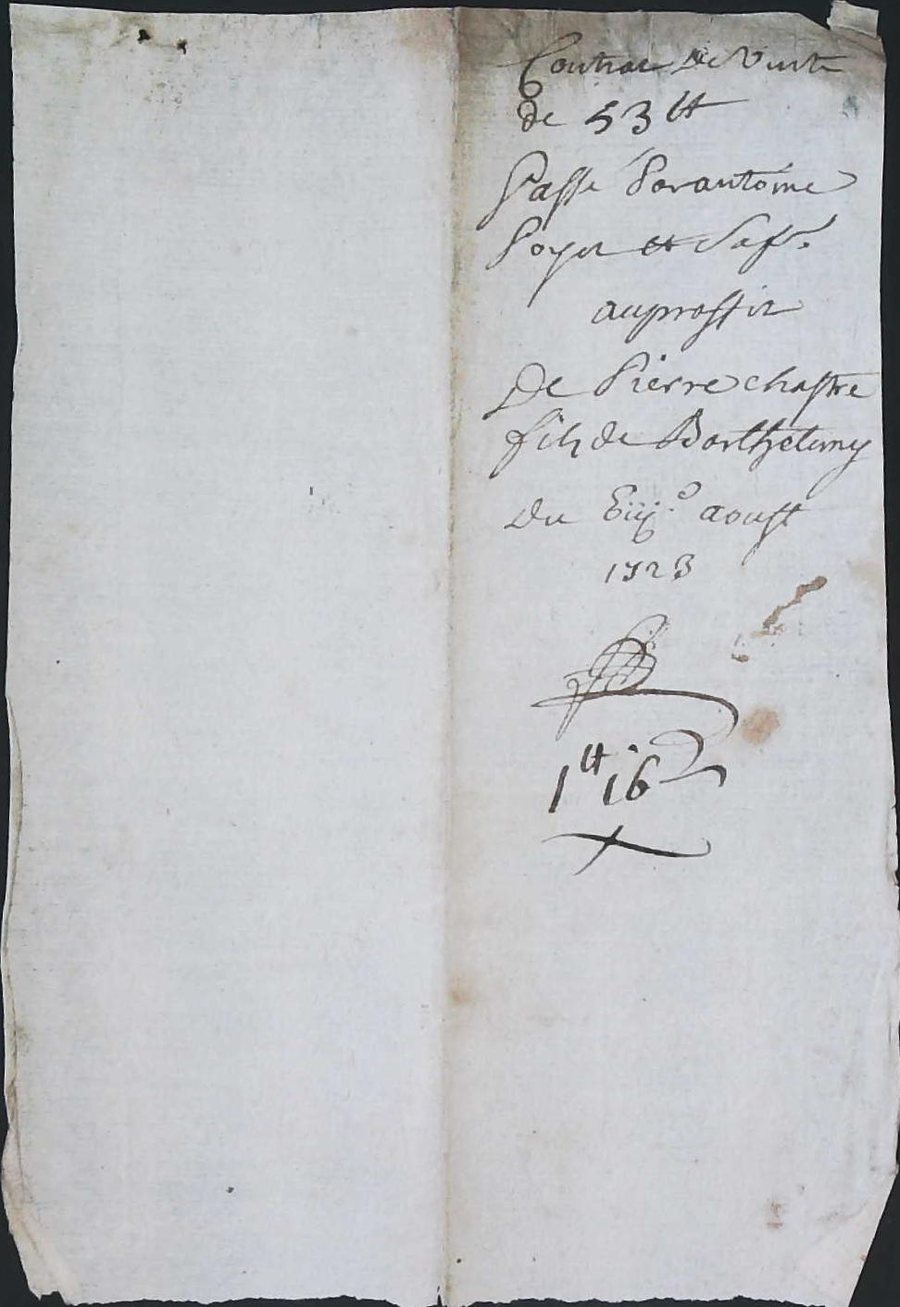 Contrac de Vente
de 53 ₶
Passé Parantoine
Poyet et Saf.^e
auproffit
De Pierre chastre
filz de Barthelemy
du aoust
1723
1 ₶ 16